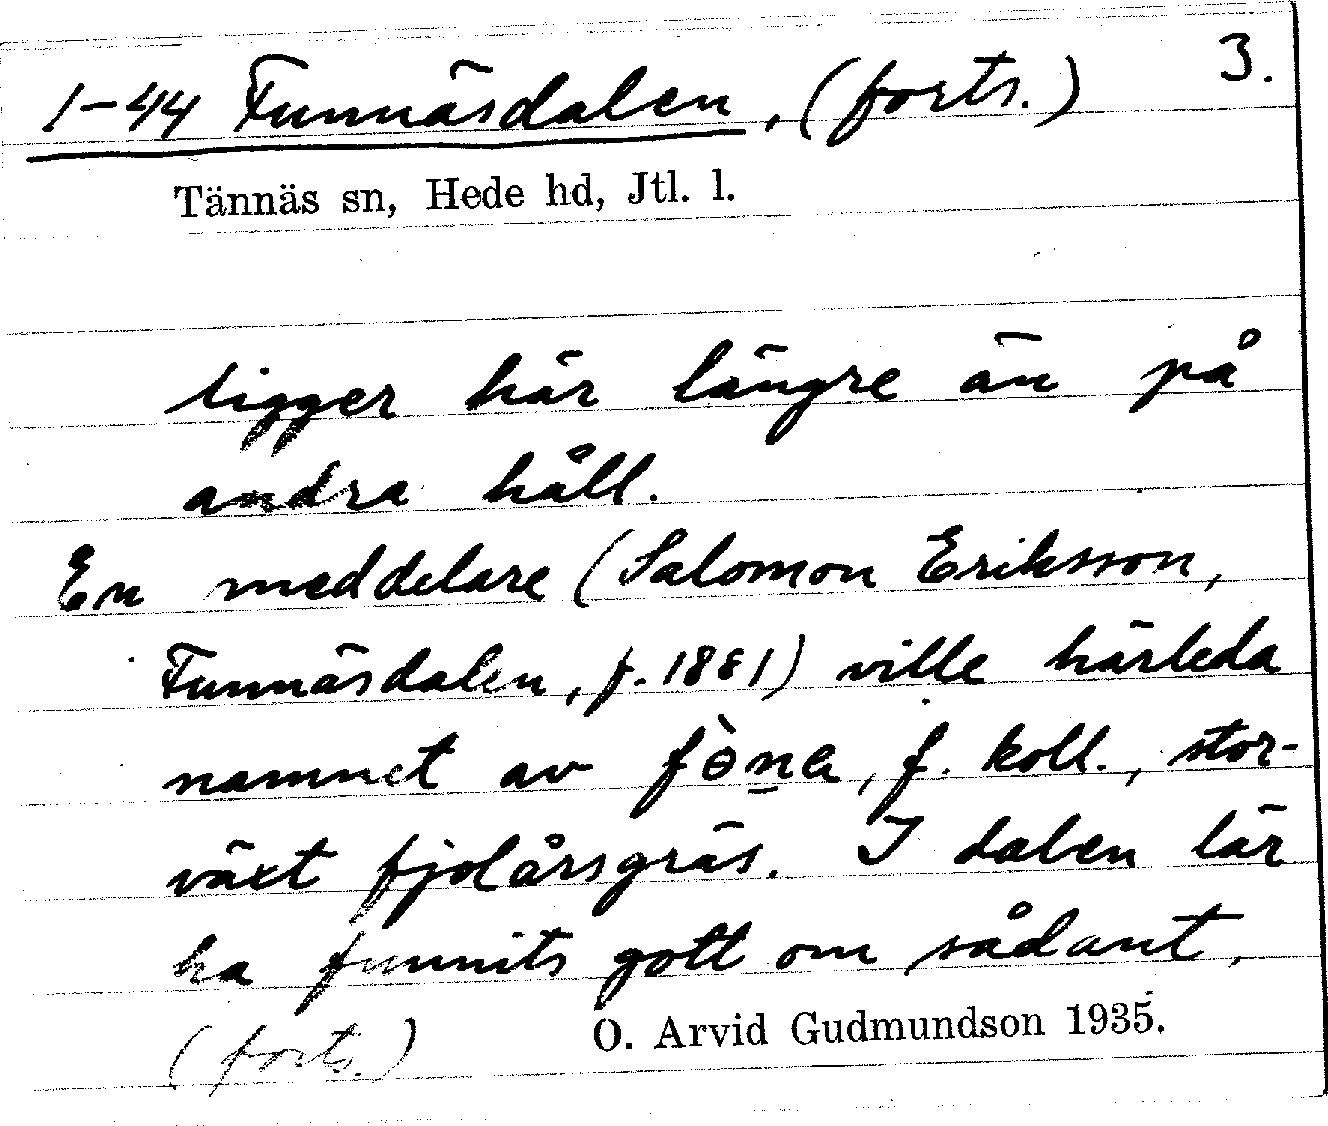 3.
1-44 Funnäsdalen, (forts.)
Tännäs sn, Hede hd, Jtl. l.
ligger här längre än på
andra håll.
En meddelare (Salomon Eriksson,
Funnäsdalen, f. 1881) ville härleda
namnet av fòna, f. koll., stor-
växt fjolårsgräs. I dalen lär
ha funnits gott om sådant,
(forts.)
O. Arvid Gudmundson 1935.